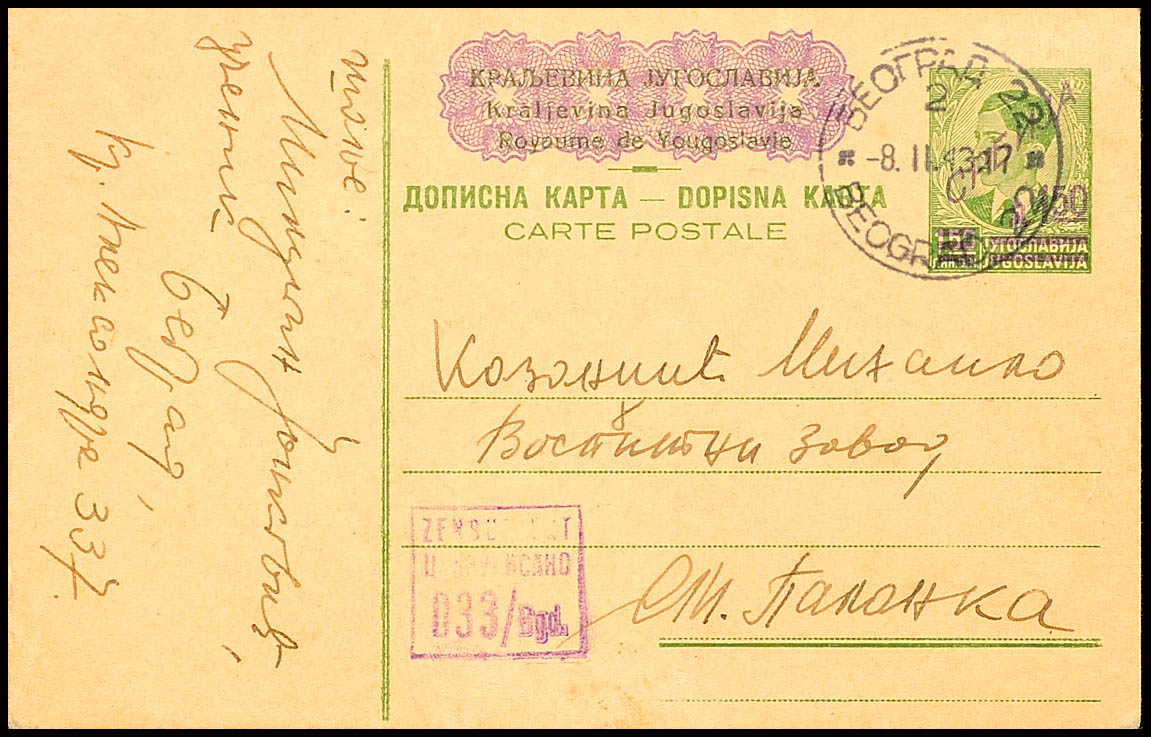 КРАЉЕВИНА ЈУГОСЛАВИЈА
Kraljevina Jugoslavija
Royaume de Yougoslavie
ДОПИСНА КАРТА — DOPISNA KARTA
CARTE POSTALE
БЕОГРАД 22
-8. II. 43. 17
BEOGRAD 22
1·50
ЈУГОСЛАВИЈА
JUGOSLAVIJA
Михаило
Васпитни завод
Ст. Паланка
ZENSURIERT
ЦЕНЗУРИСАНО
033/Bgd.
шаље:
Београд,
кр. Александра 33